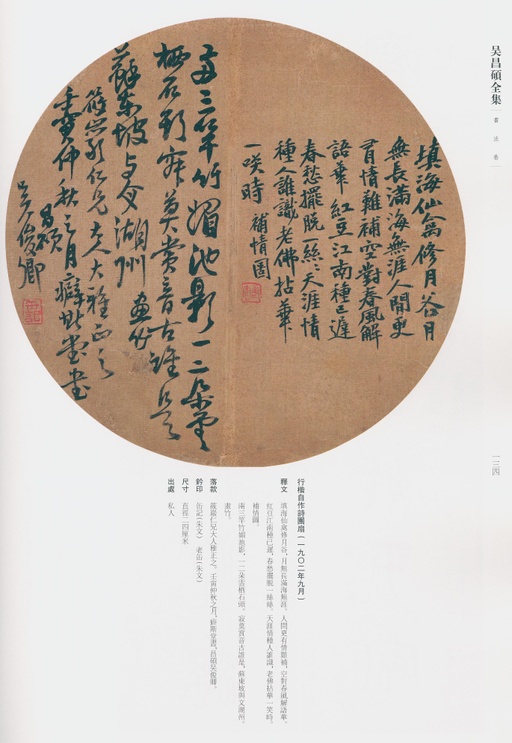 吴昌碩全集
書法卷
填海仙禽修月谷月
無長滿海無涯人間更
有情難補空對春風解
語華紅豆江南種已遲
春愁擺脫一絲絲天涯情
種人誰識老佛拈華
一咲時 補情圖
兩三竿竹媚池影一二朵雲
栖石頭寂莫賞音古誰是
蘇東坡与文湖州 畫竹
蘊然鄰仁兄大人大雅正之
壬寅仲秋之月癖斯堂書
昌碩吴俊卿
一三四
行楷自作詩團扇(一九〇二年九月)
釋文 填海仙禽修月谷,月無長滿海無涯。人間更有情難補,空對春風解語華。
紅豆江南種已遲,春愁擺脫一絲絲。天涯情種人誰識,老佛拈華一笑時。
補情圖。
兩三竿竹媚池影,一二朵雲栖石頭。寂莫賞音古誰是,蘇東坡與文湖州。
畫竹。
落款 仁兄大人雅正之。壬寅仲秋之月,癖斯堂書,昌碩吴俊卿。
鈐印 缶記(朱文) 老缶(朱文)
尺寸 直徑二四厘米
出處 私人